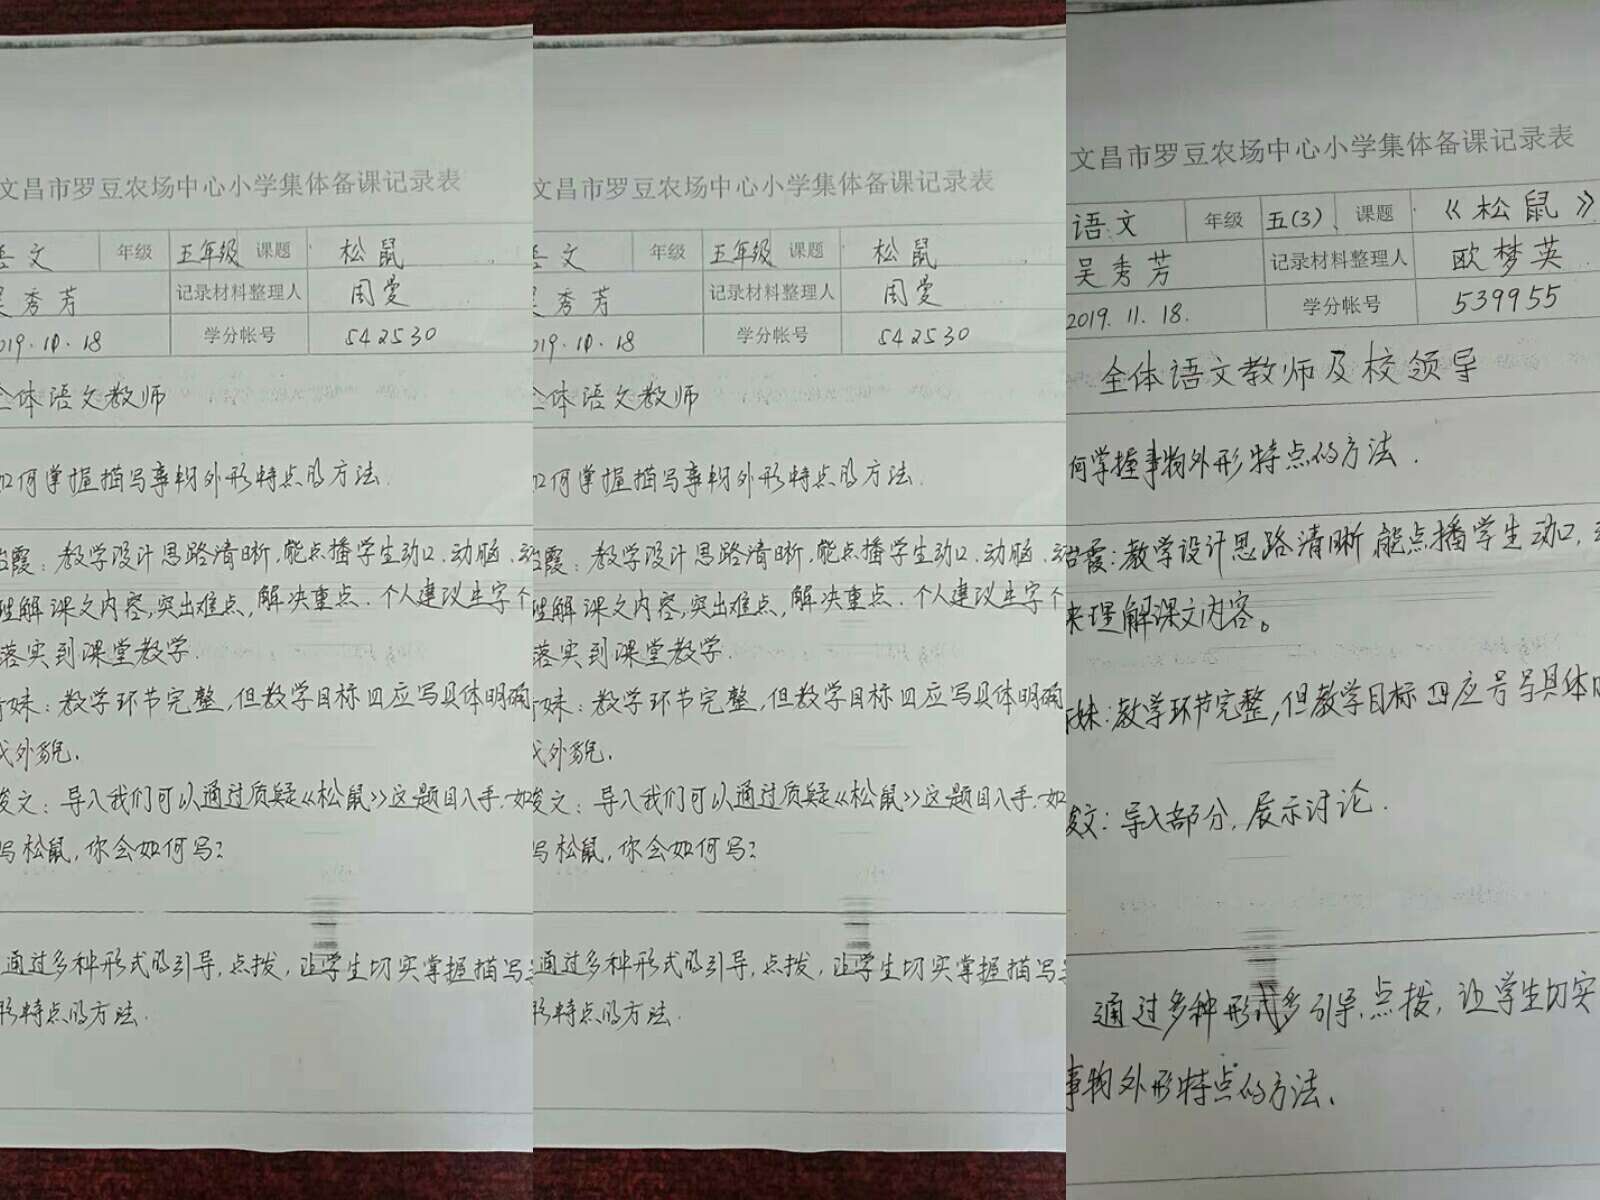 文昌市罗豆农场中心小学集体备课记录表
语文 年级 五年级 课题 松鼠
吴秀芳 记录材料整理人 周爱
019.10.18 学分帐号 542530
全体语文教师
如何掌握描写事物外形特点的方法.
霞：教学设计思路清晰,能点播学生动口、动脑、动
理解课文内容,突出难点,解决重点.个人建议生字不
落实到课堂教学.
妹：教学环节完整,但教学目标四应写具体明确
外貌.
俊文：导入我们可以通过质疑《松鼠》这题目入手.如
写松鼠,你会如何写?
通过多种形式的引导,点拨,让学生切实掌握描写
形特点的方法.
文昌市罗豆农场中心小学集体备课记录表
语文 年级 五年级 课题 松鼠
吴秀芳 记录材料整理人 周爱
019.10.18 学分帐号 542530
全体语文教师
如何掌握描写事物外形特点的方法.
霞：教学设计思路清晰,能点播学生动口、动脑、动
理解课文内容,突出难点,解决重点.个人建议生字不
落实到课堂教学.
妹：教学环节完整,但教学目标四应写具体明确
外貌.
俊文：导入我们可以通过质疑《松鼠》这题目入手.如
写松鼠,你会如何写?
通过多种形式的引导,点拨,让学生切实掌握描写
形特点的方法.
文昌市罗豆农场中心小学集体备课记录表
语文 年级 五(3) 课题 《松鼠》
吴秀芳 记录材料整理人 欧梦英
2019.11.18. 学分帐号 539955
全体语文教师及校领导
何学握事物外形特点的方法.
霞：教学设计思路清晰,能点播学生动口,
来理解课文内容。
妹：教学环节完整,但教学目标四应号写具体
俊文：导入部分,展示讨论.
通过多种形式多引导,点拨,让学生切实
事物外形特点的方法.